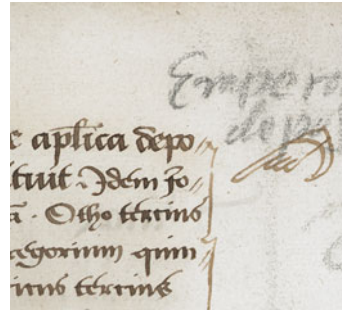 Empero
depo
e aplica depo
tuit. Idem Jo
Otho tercius
egorium quin
ricus tercius